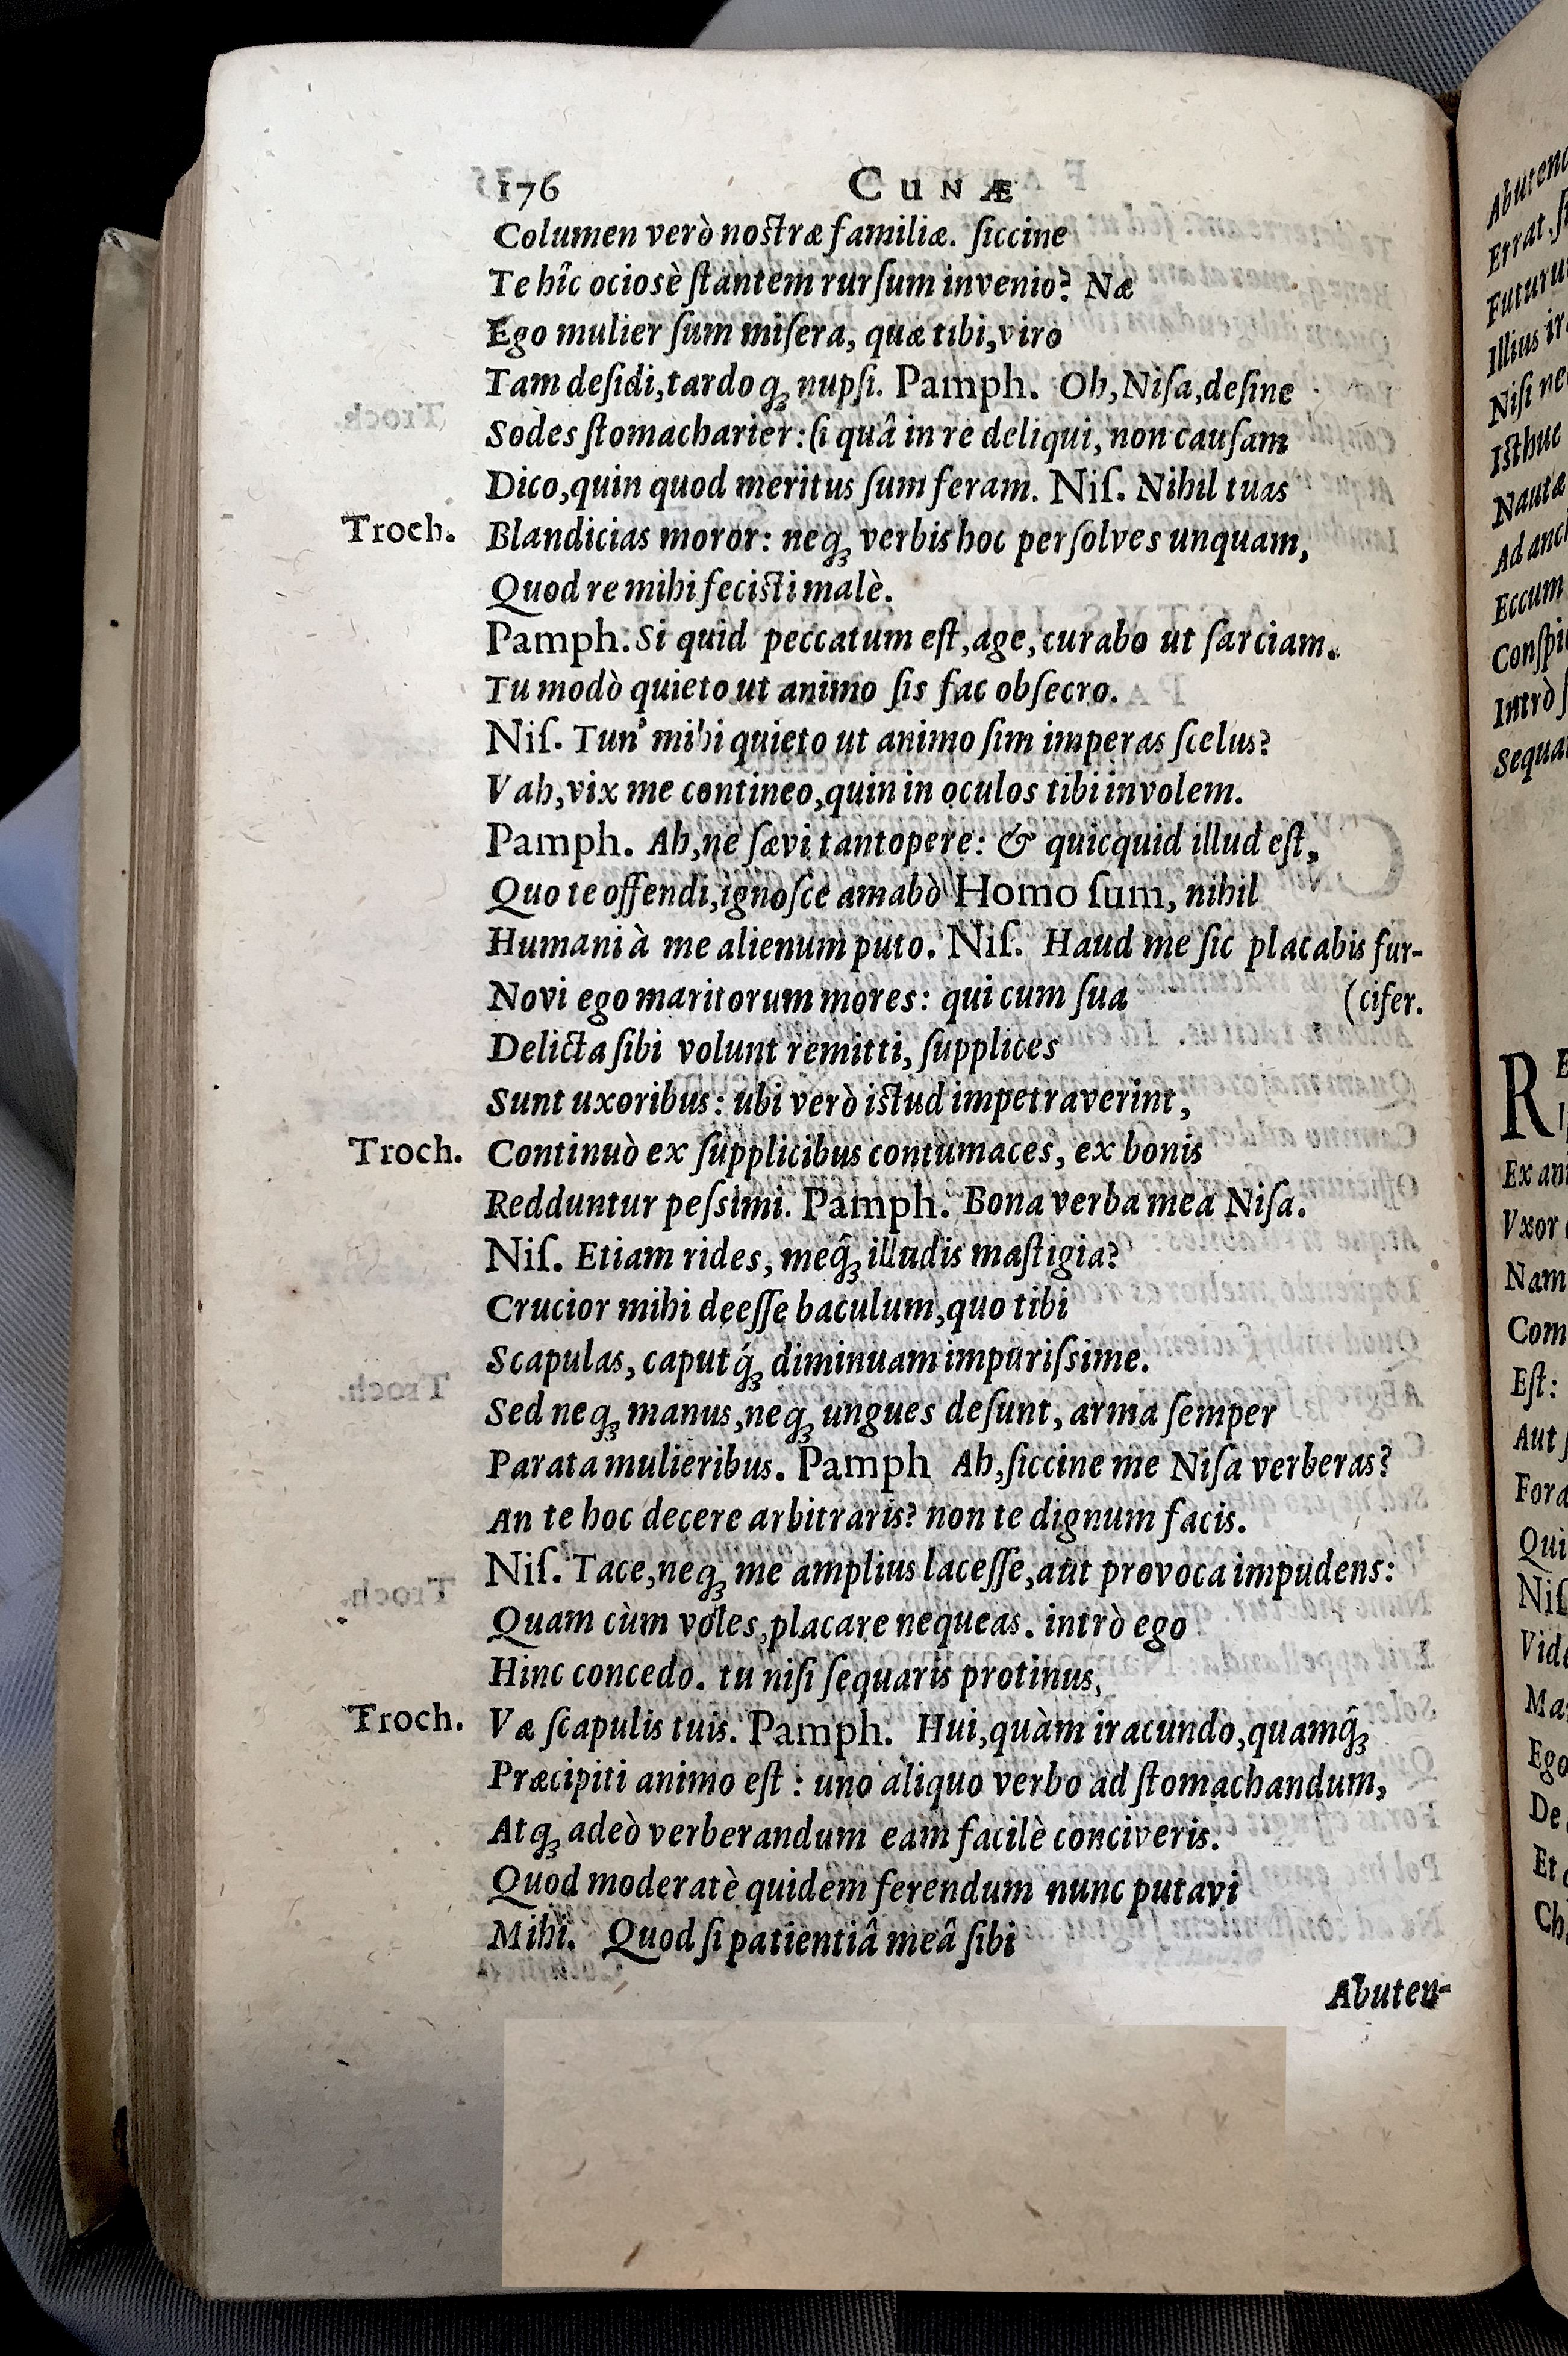 176 CUNÆ
Columen verò nostræ familiæ. ſiccine
Te hîc ociosè ſtantem rurſum invenio? Næ
Ego mulier ſum miſera, quæ tibi, viro
Tam deſidi, tardoq́; nupſi. Pamph. Oh, Niſa, deſine
Sodes ſtomacharier: ſi quâ in re deliqui, non cauſam
Dico, quin quod meritus ſum feram. Niſ. Nihil tuas
Troch. Blandicias moror: neq; verbis hoc perſolves unquam,
Quod re mihi feciſti malè.
Pamph. Si quid peccatum eſt, age, curabo ut ſarciam.
Tu modò quieto ut animo ſis fac obſecro.
Niſ. Tun' mihi quieto ut animo ſim imperas ſcelus?
Vah, vix me contineo, quin in oculos tibi involem.
Pamph. Ah, ne ſævi tantopere: & quicquid illud eſt,
Quo te offendi, ignoſce amabò Homo ſum, nihil
Humani à me alienum puto. Niſ. Haud me ſic placabis fur-
Novi ego maritorum mores: qui cum ſua (cifer.
Delicta ſibi volunt remitti, ſupplices
Sunt uxoribus: ubi verò iſtud impetraverint,
Troch. Continuò ex ſupplicibus contumaces, ex bonis
Redduntur peſsimi. Pamph. Bona verba mea Niſa.
Niſ. Etiam rides, meq́; illudis maſtigia?
Crucior mihi deeſſe baculum, quo tibi
Scapulas, caputq́; diminuam impuriſsime.
Sed neq; manus, neq; ungues deſunt, arma ſemper
Parata mulieribus. Pamph Ah, ſiccine me Niſa verberas?
An te hoc decere arbitraris? non te dignum facis.
Niſ. Tace, neq; me amplius laceſſe, aut provoca impudens:
Quam cùm voles, placare nequeas. intrò ego
Hinc concedo. tu niſi ſequaris protinus,
Troch. Væ ſcapulis tuis. Pamph. Hui, quàm iracundo, quamq́;
Præcipiti animo eſt: uno aliquo verbo ad ſtomachandum,
Atq; adeò verberandum eam facilè conciveris.
Quod moderatè quidem ferendum nunc putavi
Mihi. Quod ſi patientiâ meâ ſibi
Abuten-